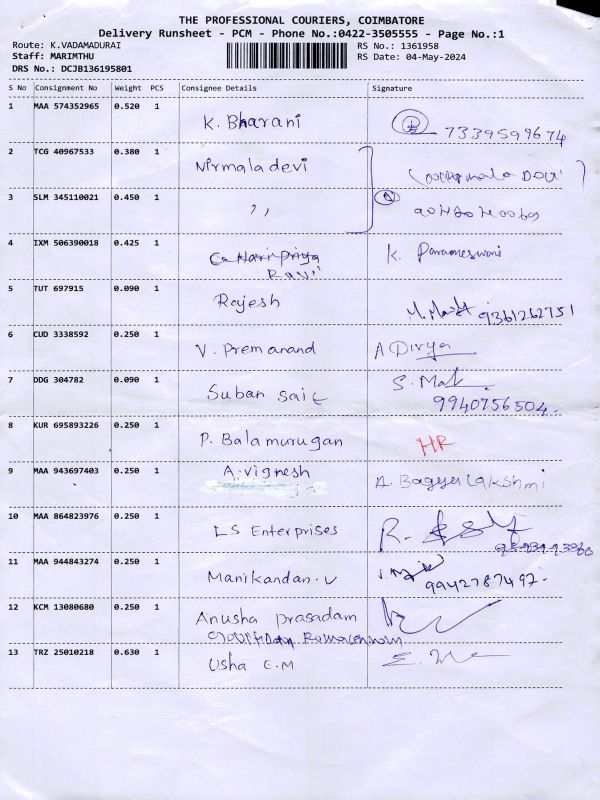 THE PROFESSIONAL COURIERS, COIMBATORE
Delivery Runsheet - PCM - Phone No.:0422-3505555 - Page No.:1
Route: K.VADAMADURAI
RS No.: 1361958
Staff: MARIMTHU
RS Date: 04-May-2024
DRS No.: DCJB136195801
S No Consignment No Weight PCS Consignee Details Signature
1 MAA 574352965 0.520 1 K. Bharani 7339599674
2 TCG 40967533 0.380 1 Nirmala devi
3 SLM 345110021 0.450 1 ,,
4 IXM 506390018 0.425 1 Haripriya K. Parameswari
Ravi
5 TUT 697915 0.090 1 Rajesh 9361262751
6 CUD 3338592 0.250 1 V. Premanand A Divya
7 DDG 304782 0.090 1 Suban Sait S. Mal
9940756504.
8 KUR 695893226 0.250 1 P. Balamurugan HR
9 MAA 943697403 0.250 1 A. Vignesh A. Bagya lakshmi
10 MAA 864823976 0.250 1 LS Enterprises R.
11 MAA 944843274 0.250 1 Manikandan. V 9942787497.
12 KCM 13080680 0.250 1 Anusha prasadam
13 TRZ 25010218 0.630 1 Usha E.M